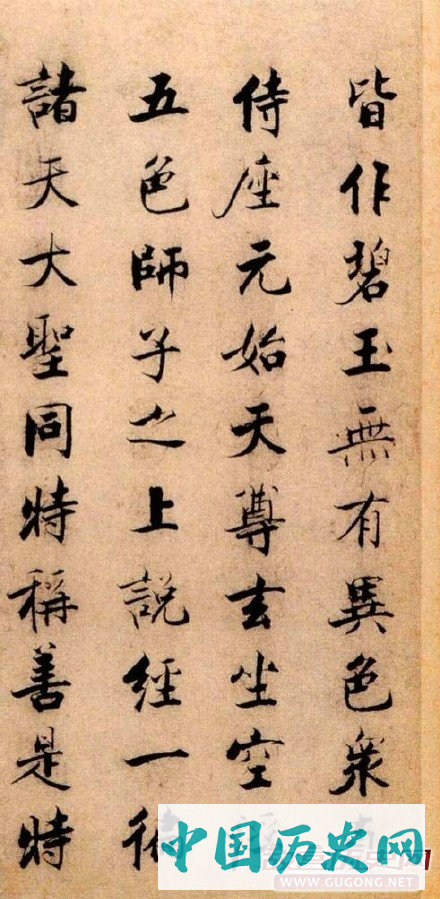 皆作碧玉無有異色衆
侍座元始天尊玄坐空
五色師子之上說經一
諸天大聖同時稱善是時
中国历史网
WWW.GUGONG.NET